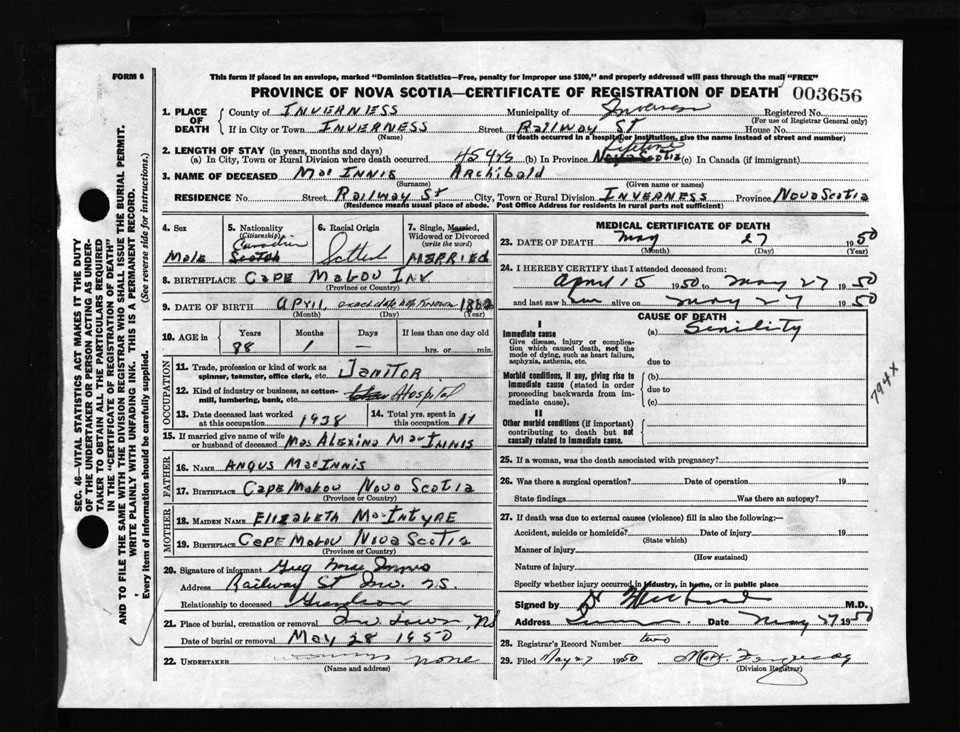 FORM 6
This form if placed in an envelope, marked "Dominion Statistics—Free, penalty for improper use $300," and properly addressed will pass through the mail "FREE"
PROVINCE OF NOVA SCOTIA—CERTIFICATE OF REGISTRATION OF DEATH 003656
1. PLACE OF DEATH County of INVERNESS Municipality of Inverness Registered No.
(For use of Registrar General only)
If in City or Town INVERNESS Street Railway St House No.
(Name) (If death occurred in a hospital or institution, give the name instead of street and number)
2. LENGTH OF STAY (in years, months and days)
(a) In City, Town or Rural Division where death occurred 45 yrs (b) In Province Lifetime Nova Scotia (c) In Canada (if immigrant)
3. NAME OF DECEASED Mac INNIS Archibald
(Surname) (Given name or names)
RESIDENCE No. Street Railway St City, Town or Rural Division INVERNESS Province Nova Scotia
(Residence means usual place of abode. Post Office Address for residents in rural parts not sufficient)
4. Sex Male
5. Nationality (Citizenship) Canadian Scotch
6. Racial Origin
7. Single, Married, Widowed or Divorced (write the word) MERRIED
8. BIRTHPLACE CAPE Mabou INV
(Province or Country)
9. DATE OF BIRTH APril exact date not Known 1862
(Month) (Day) (Year)
10. AGE in Years Months Days If less than one day old
88 1 – hrs. or min.
OCCUPATION
11. Trade, profession or kind of work as spinner, teamster, office clerk, etc. JANITOR
12. Kind of industry or business, as cotton-mill, lumbering, bank, etc. Hospital
13. Date deceased last worked at this occupation 1938
14. Total yrs. spent in this occupation 11
15. If married give name of wife or husband of deceased Mas Alexina MacINNIS
FATHER
16. NAME ANGUS MacINNIS
17. BIRTHPLACE CAPE Mabou Nova Scotia
(Province or Country)
MOTHER
18. MAIDEN NAME Elizabeth MacINTYRE
19. BIRTHPLACE CAPE Mabou Nova Scotia
(Province or Country)
20. Signature of informant Mac Innis
Address Railway St Inv. N.S.
Relationship to deceased Grandson
21. Place of burial, cremation or removal Inv. Town, NS
Date of burial or removal May 28 1950
22. UNDERTAKER none
(Name and address)
MEDICAL CERTIFICATE OF DEATH
23. DATE OF DEATH May 27 1950
(Month) (Day) (Year)
24. I HEREBY CERTIFY that I attended deceased from:
April 15 1950 to May 27 1950
and last saw him alive on May 27 1950
CAUSE OF DEATH
I
Immediate cause (a) Senility
Give disease, injury or complication which caused death, not the mode of dying, such as heart failure, asphyxia, asthenia, etc.
due to
Morbid conditions, if any, giving rise to immediate cause (stated in order proceeding backwards from immediate cause).
(b)
due to
(c)
II
Other morbid conditions (if important) contributing to death but not causally related to immediate cause.
794X
25. If a woman, was the death associated with pregnancy?
26. Was there a surgical operation? Date of operation 19
State findings Was there an autopsy?
27. If death was due to external causes (violence) fill in also the following:—
Accident, suicide or homicide? Date of injury 19
(State which)
Manner of injury
(How sustained)
Nature of injury
Specify whether injury occurred in industry, in home, or in public place
Signed by M.D.
Address Date May 27 1950
28. Registrar's Record Number two
29. Filed May 27 1950
(Division Registrar)
SEC. 46—VITAL STATISTICS ACT MAKES IT THE DUTY
OF THE UNDERTAKER OR PERSON ACTING AS UNDER-
TAKER TO OBTAIN ALL THE PARTICULARS REQUIRED
IN THE "CERTIFICATE OF REGISTRATION OF DEATH"
AND TO FILE THE SAME WITH THE DIVISION REGISTRAR WHO SHALL ISSUE THE BURIAL PERMIT.
WRITE PLAINLY WITH UNFADING INK. THIS IS A PERMANENT RECORD.
Every item of information should be carefully supplied. (See reverse side for instructions.)